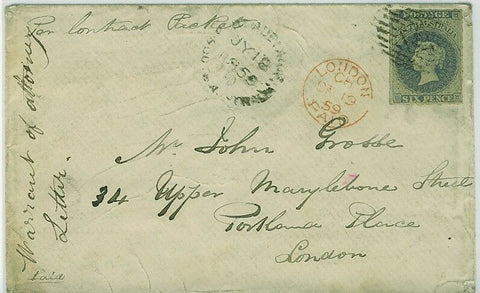 Per Contract Packet
Warrant of attorney
Letter.
Paid
JY 19
LONDON
CH
19
59
PAID
POSTAGE
SOUTH AUSTRALIA
SIX PENCE
Mr John Grosse
34 Upper Marylebone Street
Portland Place
London